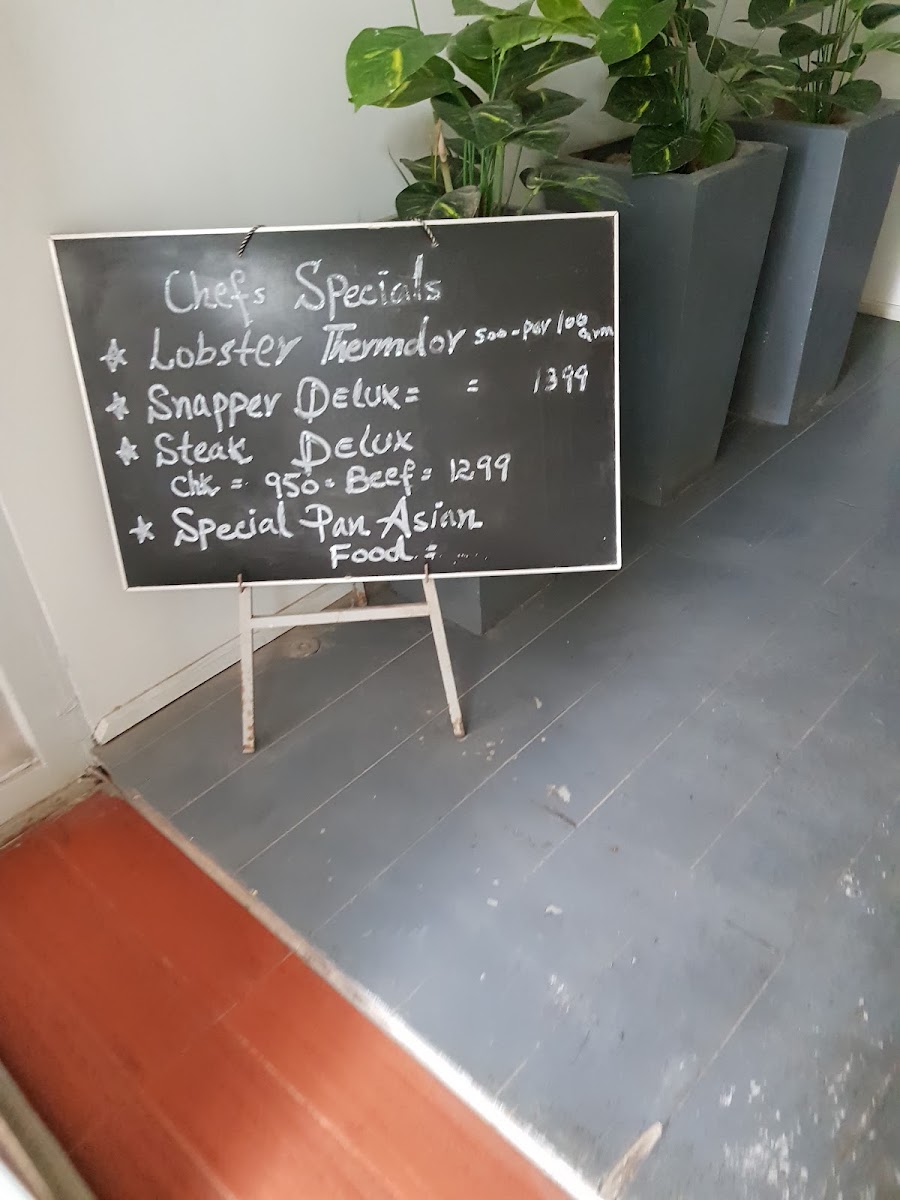 Chefs Specials
* Lobster Thermdor 500-per/100 grm
* Snapper Delux = = 1399
* Steak Delux
Chk = 950 - Beef = 1299
* Special Pan Asian
Food = ....